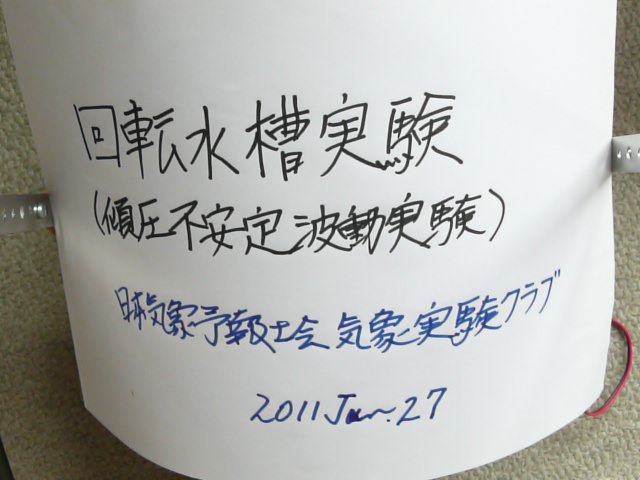 回転水槽実験
(傾圧不安定波動実験)
日本気象予報士会気象実験クラブ
2011 Jan. 27